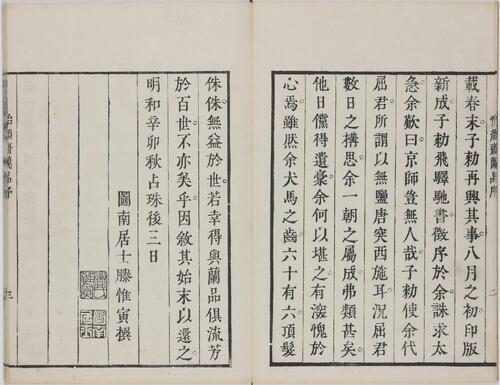 載春末子勅再興其事八月之初印版
新成子勅飛驛馳書徵序於余誅求太
急余歎曰京師豈無人哉子勅使余代
屈君所謂以無鹽唐突西施耳況屈君
數日之搆思余一朝之屬成弗類甚矣
他日儻得遺稾余何以堪之有瀣愧於
心焉雖然余犬馬之齒六十有六頂髮
侏侏無益於世若幸得與蘭品俱流芳
於百世不亦美乎因敘其始末以還之
明和辛卯秋占珠後三日
圖南居士滕惟寅撰